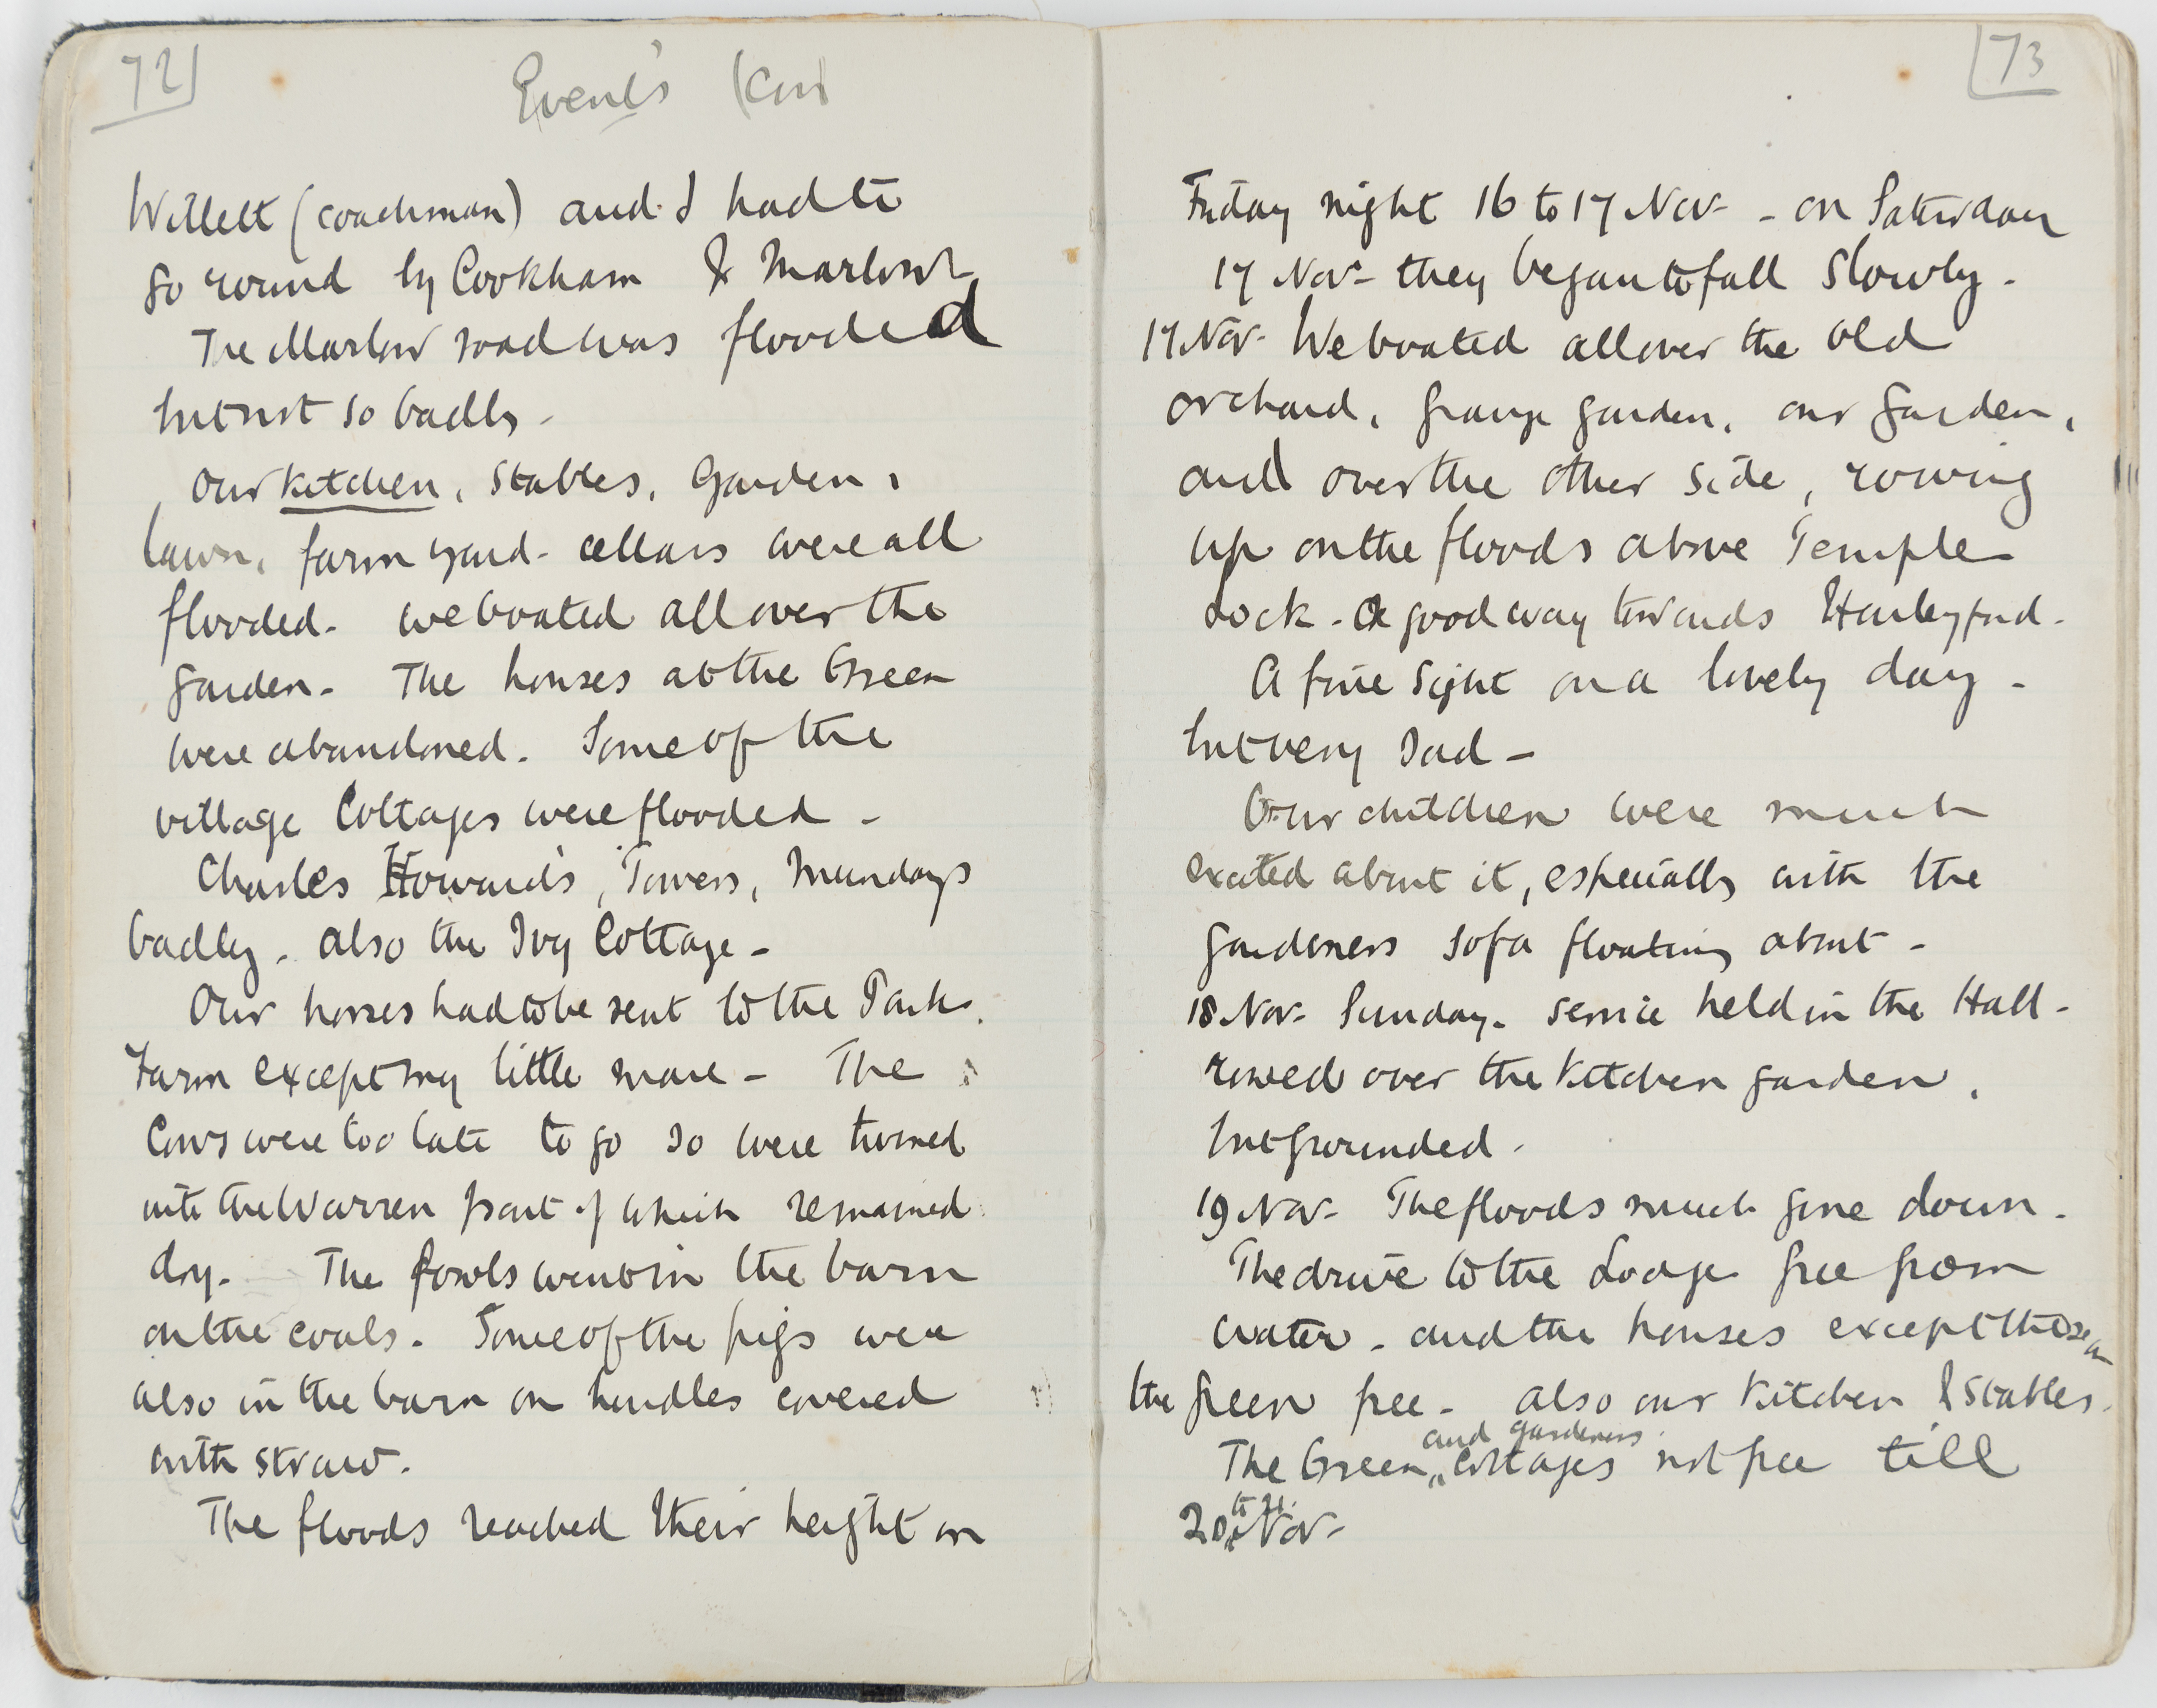 72
Events (Con
Willett (coachman) and I had to
go round by Cookham & Marlow
The Marlow road was flooded
but not so badly -
Our kitchen, stables, garden,
lawn, farm yard - cellars were all
flooded - we boated all over the
garden - The houses at the Green
were abandoned. Some of the
village Cottages were flooded -
Charles Howard's, Towers, Mundays
badly - also the Ivy Cottage -
Our horses had to be sent to the Park
Farm except my little mare - The
Cows were too late to go so were turned
into the Warren part of which remained
dry - The fowls went in the barn
on the coals. Some of the pigs were
also in the barn on hurdles covered
with straw.
The floods reached their height on
73
Friday night 16 to 17 Nov - on Saturday
17 Nov - they began to fall slowly -
17 Nov - We boated all over the old
orchard, grange garden, our garden,
and over the other side, rowing
up on the floods above Temple
Lock - a good way towards Harleyford -
A fine sight on a lovely day -
but very sad -
Our children were much
excited about it, especially with the
gardeners sofa floating about -
18 Nov - Sunday - service held in the Hall -
rowed over the kitchen garden,
but grounded.
19 Nov - The floods much gone down -
The drive to the Lodge free from
water - and the houses except those on
the green free - also our kitchen & stables.
The Green and gardeners cottages not free till
20 to 21 Nov -